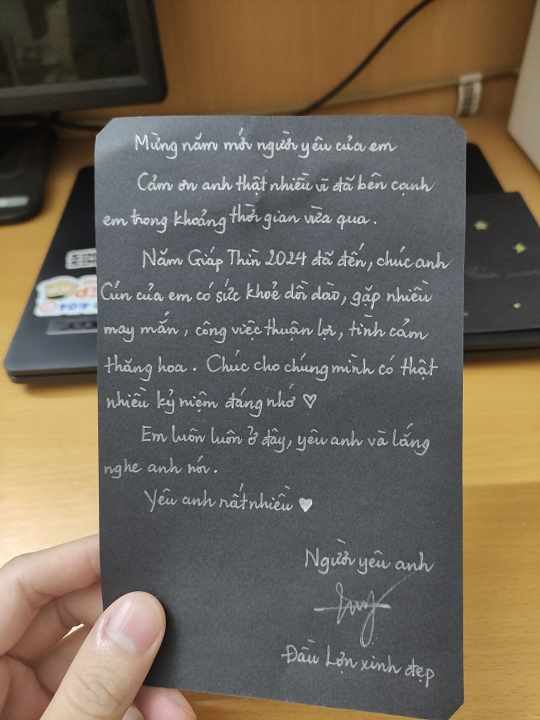 Mừng năm mới người yêu của em
Cảm ơn anh thật nhiều vì đã bên cạnh
em trong khoảng thời gian vừa qua.
Năm Giáp Thìn 2024 đã đến, chúc anh
Cún của em có sức khoẻ dồi dào, gặp nhiều
may mắn, công việc thuận lợi, tình cảm
thăng hoa. Chúc cho chúng mình có thật
nhiều kỷ niệm đáng nhớ ♡
Em luôn luôn ở đây, yêu anh và lắng
nghe anh nói.
Yêu anh rất nhiều ♥
Người yêu anh
Đầu Lợn xinh đẹp